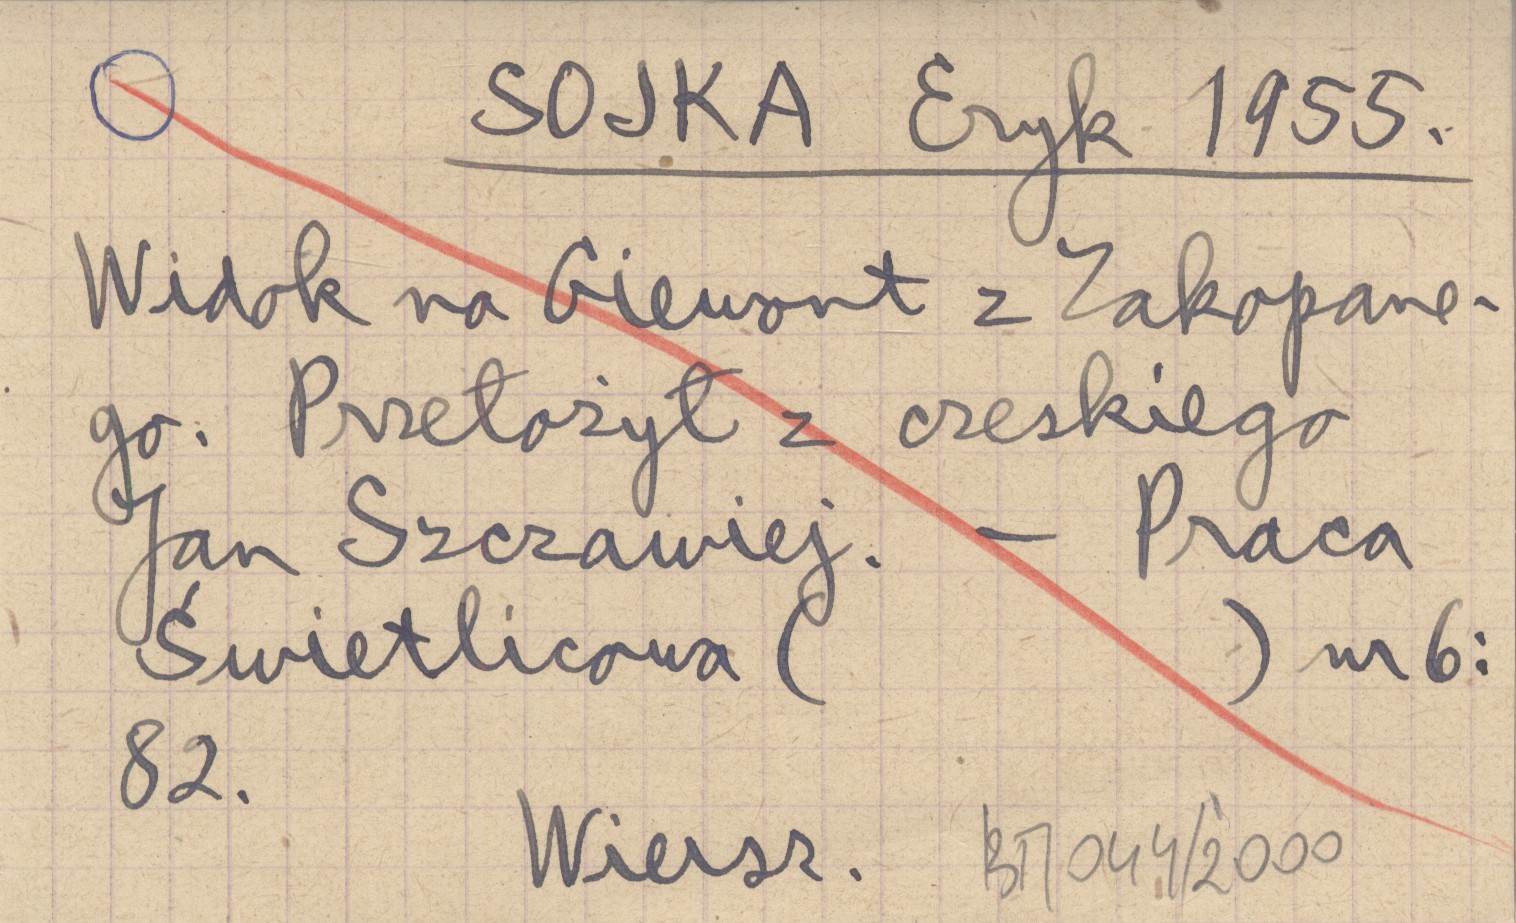 SOJKA Eryk 1955.
Widok na Giewont z Zakopane-
go. Przełożył z czeskiego
Jan Szczawiej. — Praca
Świetlicowa ( ) nr 6:
82.
Wiersz. 044/2000